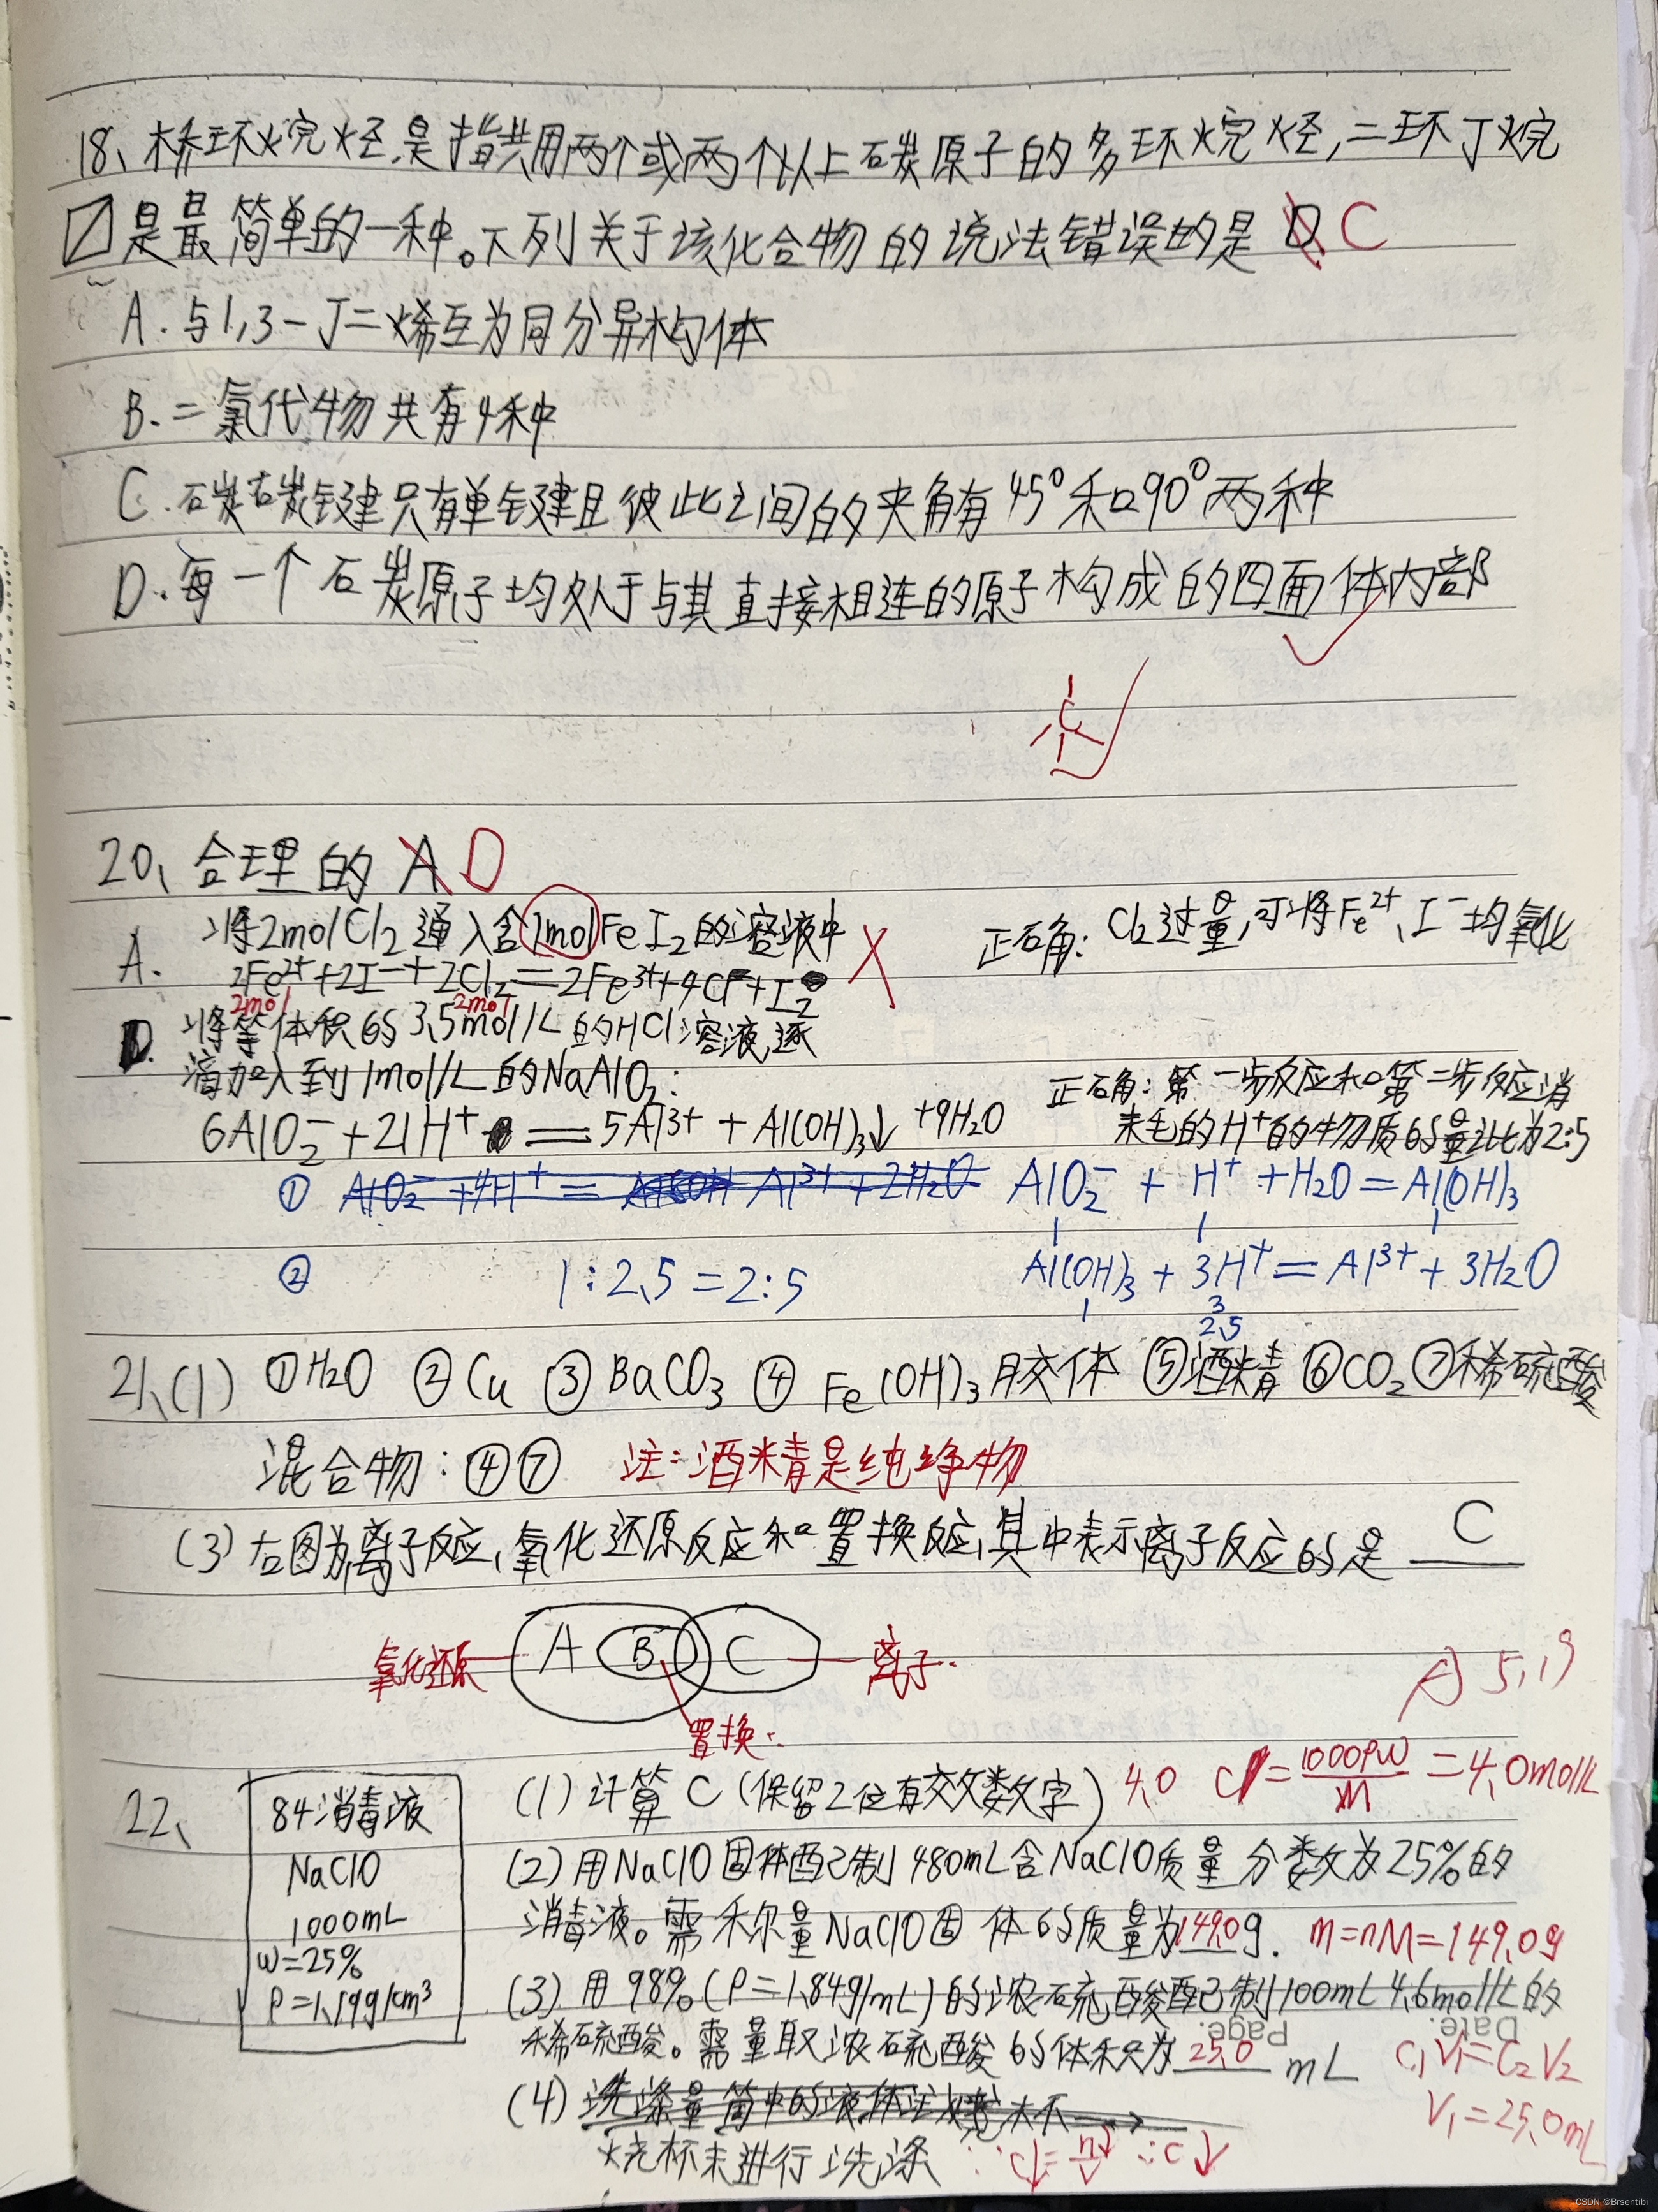 18、桥环烷烃是指共用两个或两个以上碳原子的多环烷烃,二环丁烷
是最简单的一种。下列关于该化合物的说法错误的是 D C
A. 与1,3-丁二烯互为同分异构体
B. 二氯代物共有4种
C. 碳碳键只有单键且彼此之间的夹角有45°和90°两种
D. 每一个碳原子均处于与其直接相连的原子构成的四面体内部
C
20、合理的 A D
A. 将2molCl₂通入含2molFeI₂的溶液中
2Fe²⁺+2I⁻+2Cl₂=2Fe³⁺+4Cl⁻+I₂
2mol 2mol
正确:Cl₂过量,可将Fe²⁺、I⁻均氧化
D. 将等体积的3.5mol/L的HCl溶液逐
滴加入到1mol/L的NaAlO₂:
6AlO₂⁻+21H⁺=5Al³⁺+Al(OH)₃↓+9H₂O
正确:第一步反应和第二步反应消
耗的H⁺的物质的量之比为2:5
① AlO₂⁻+4H⁺= Al³⁺+2H₂O AlO₂⁻+H⁺+H₂O=Al(OH)₃
1 1 1
② 1:2.5=2:5 Al(OH)₃+3H⁺=Al³⁺+3H₂O
1 3
2.5
21、(1) ①H₂O ②Cu ③BaCO₃ ④Fe(OH)₃胶体 ⑤酒精 ⑥CO₂ ⑦稀硫酸
混合物:④⑦ 注:酒精是纯净物
(3) 右图为离子反应、氧化还原反应和置换反应,其中表示离子反应的是 C
氧化还原 A B C 离子.
置换.
22、
84消毒液
NaClO
1000mL
w=25%
ρ=1.19g/cm³
(1) 计算C(保留2位有效数字) 4.0 C=1000ρW/M=4.0mol/L
(2) 用NaClO固体配制480mL含NaClO质量分数为25%的
消毒液。需称量NaClO固体的质量为149.0g. m=nM=149.0g
(3) 用98%(ρ=1.84g/mL)的浓硫酸配制100mL 4.6mol/L的
稀硫酸。需量取浓硫酸的体积为25.0mL C₁V₁=C₂V₂
V₁=25.0mL
Date.
Page.
(4)
烧杯未进行洗涤 ∵C↓=n↓/V ∴C↓
CSDN @Brsentibi